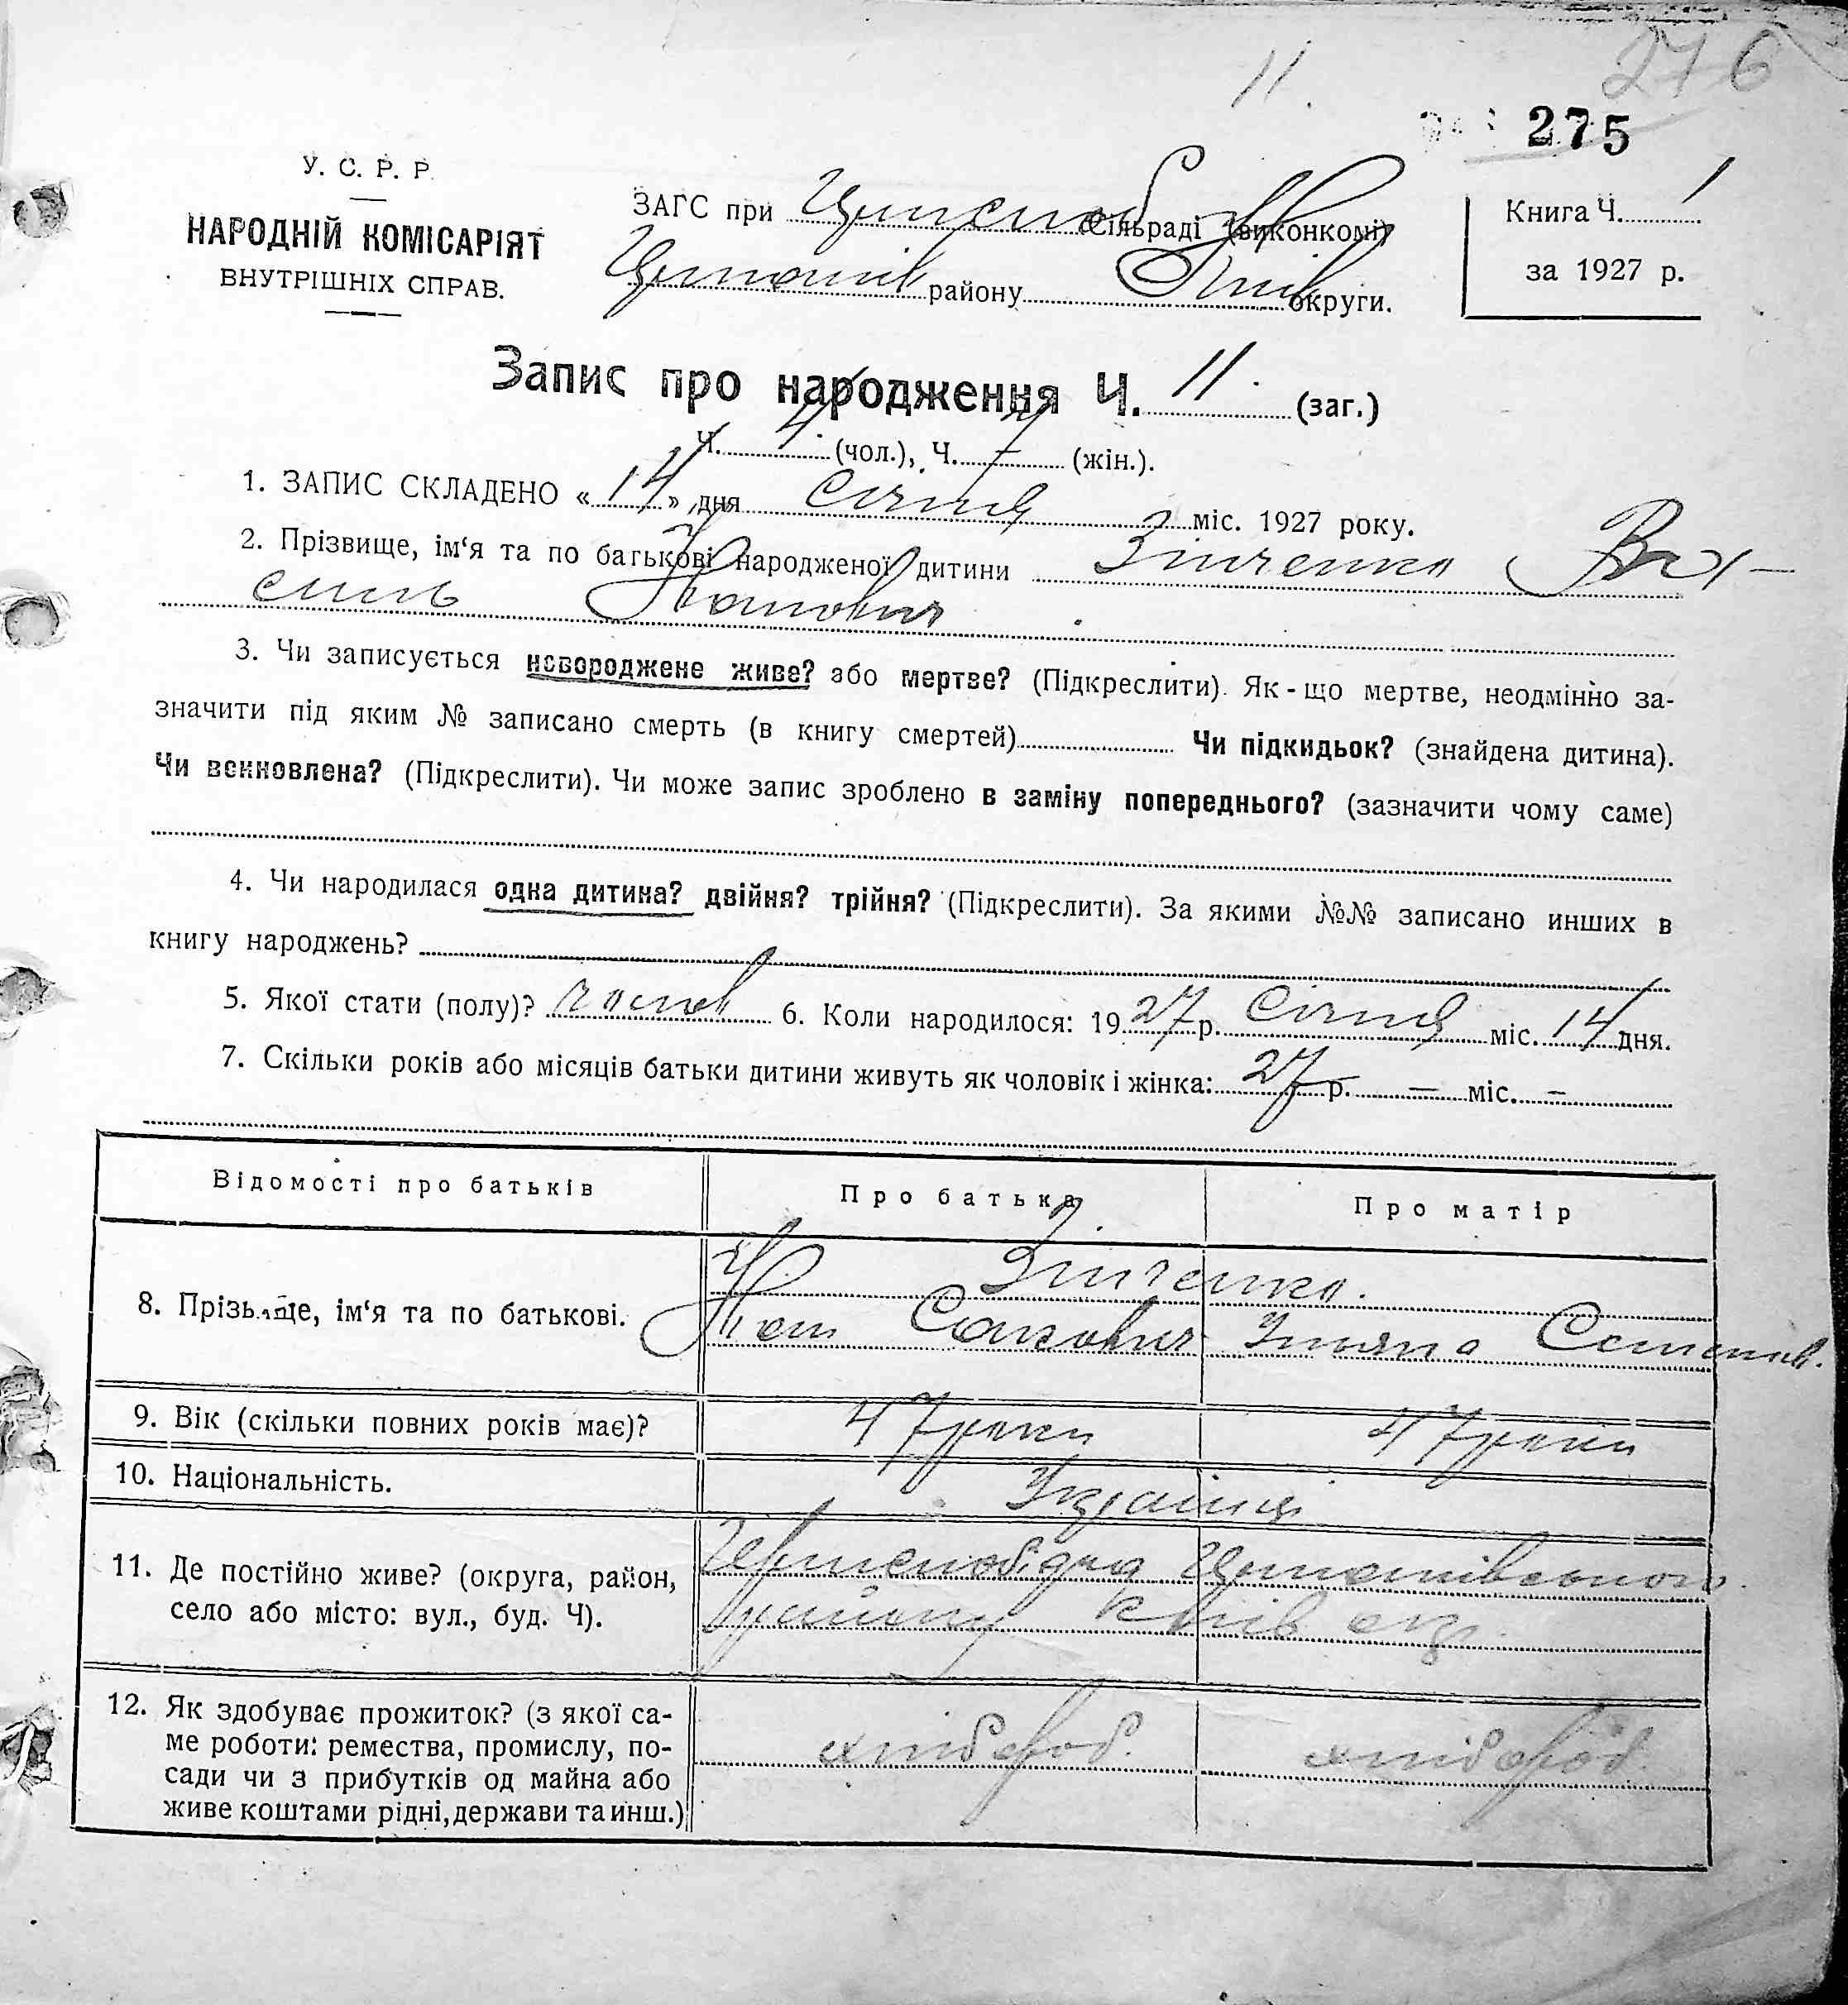 11.
276
275
У. С. Р. Р.
НАРОДНІЙ КОМІСАРІЯТ
ВНУТРІШНІХ СПРАВ.
ЗАГС при Сільраді (виконкомі)
району Київ округи.
Книга Ч. 1
за 1927 р.
Запис про народження Ч. 11. (заг.)
Ч. 4. (чол.), Ч. 7 (жін.).
1. ЗАПИС СКЛАДЕНО « 14 » дня Січня міс. 1927 року.
2. Прізвище, ім‘я та по батькові народженої дитини Зінченко Ва-
силь
3. Чи записується новороджене живе? або мертве? (Підкреслити). Як-що мертве, неодмінно за-
значити під яким № записано смерть (в книгу смертей) Чи підкидьок? (знайдена дитина).
Чи всиновлена? (Підкреслити). Чи може запис зроблено в заміну попереднього? (зазначити чому саме)
4. Чи народилася одна дитина? двійня? трійня? (Підкреслити). За якими №№ записано инших в
книгу народжень?
5. Якої стати (полу)? чолов 6. Коли народилося: 1927 р. Січня міс. 14 дня.
7. Скільки років або місяців батьки дитини живуть як чоловік і жінка: 27 р. — міс. —
Відомості про батьків
Про батька
Про матір
8. Прізвище, ім‘я та по батькові.
Зінченко.
Уляна Семенів.
9. Вік (скільки повних років має)?
47 роки
47 роки
10. Національність.
Українці
11. Де постійно живе? (округа, район,
село або місто: вул., буд. Ч).
району Київ окр.
12. Як здобуває прожиток? (з якої са-
ме роботи: ремества, промислу, по-
сади чи з прибутків од майна або
живе коштами рідні, держави та инш.)
хлібороб.
хлібороб.